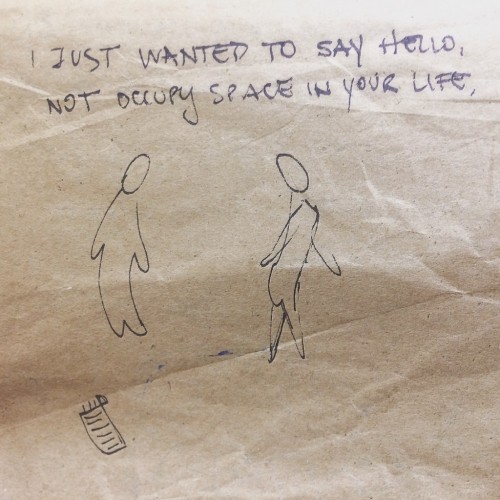 I JUST WANTED TO SAY HELLO,
NOT OCCUPY SPACE IN YOUR LIFE,